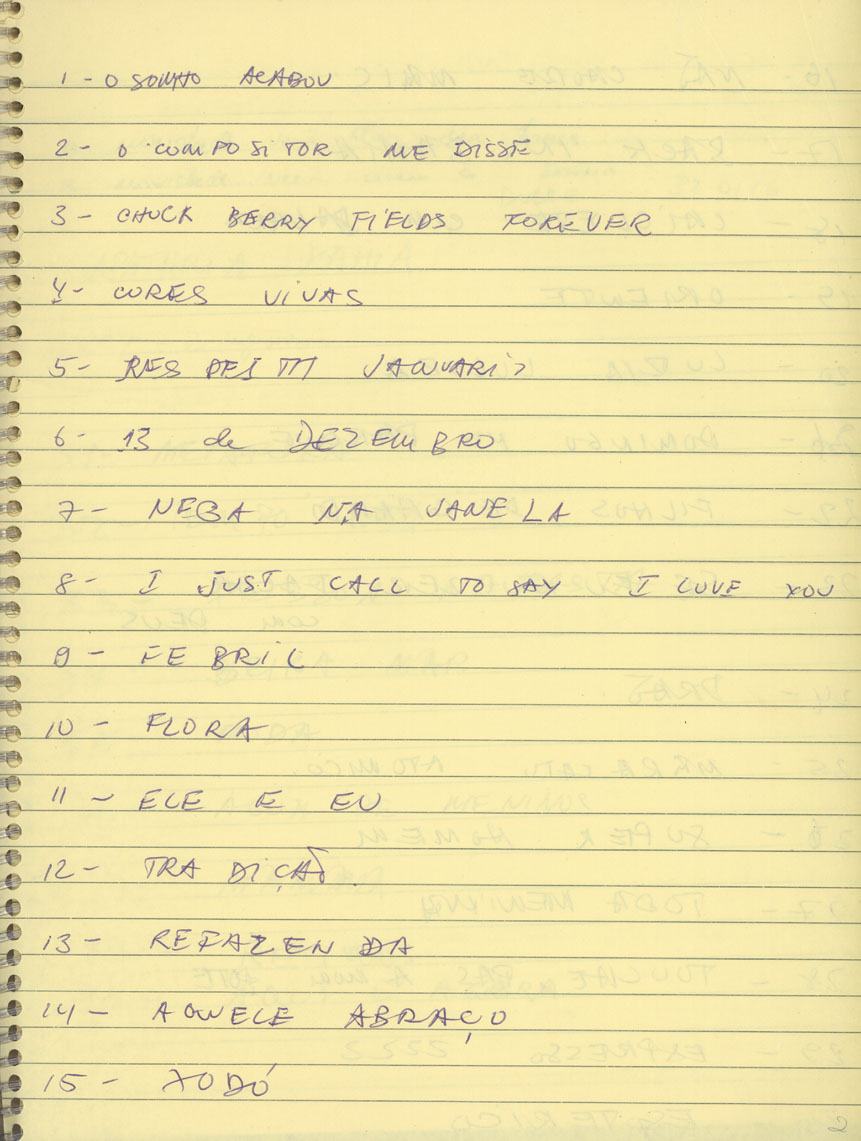 1 - O SONHO ACABOU
2 - O COMPOSITOR ME DISSE
3 - CHUCK BERRY FIELDS FOREVER
4 - CORES VIVAS
5 - RESPEITA JANUARIO
6 - 13 de DEZEMBRO
7 - NEGA NA JANELA
8 - I JUST CALL TO SAY I LOVE YOU
9 - FEBRIL
10 - FLORA
11 - ELE E EU
12 - TRADIÇÃO
13 - REFAZENDA
14 - AQUELE ABRAÇO
15 - XODÓ
2